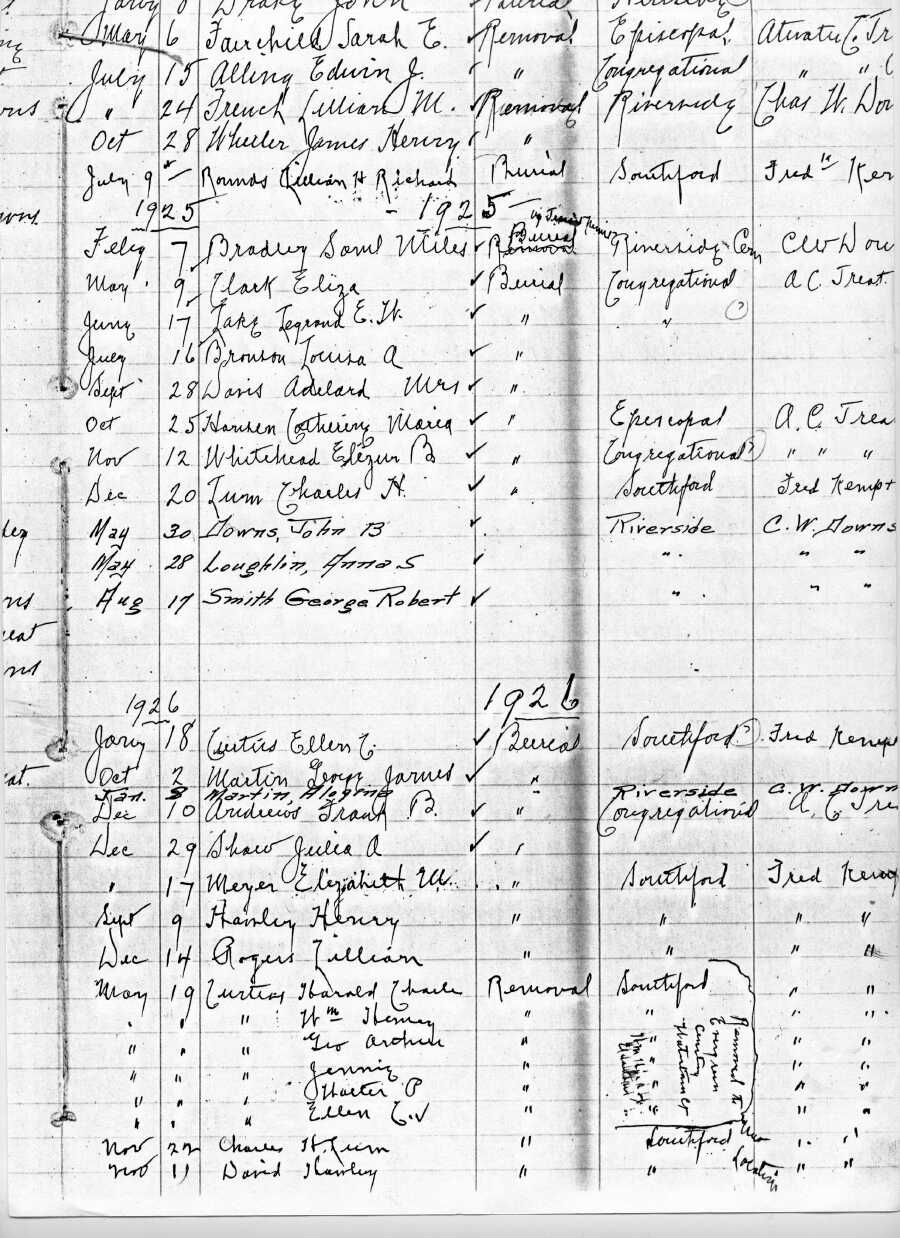 Drake John
May 6 Fairchild Sarah E. ✓ Removal Episcopal Atwater C. Tr
July 15 Alling Edwin J. ✓ " Congregational " " C
ons " 24 French Lillian M. ✓ Removal Riverside Chas W. Dow
Oct 28 Wheeler James Henry ✓ "
July 9 Rounds Lillian H Richard Burial Southford Fred Kem
1925 - 1925 -
Feby 7 Bradley Saml Miles ✓ Removal Burial Riverside Cem CW Dow
May 9 Clark Eliza ✓ Burial Congregational A C Treat.
June 17 Lake Legrand E. W. ✓ " " (?)
July 16 Bronson Louisa A ✓ "
Sept 28 Davis Adelard Mrs ✓ "
Oct 25 Hansen Catherine Maria ✓ " Episcopal A. C. Trea
Nov 12 Whitehead Elizur B ✓ " Congregational ?) " " "
Dec 20 Lum Charles H. ✓ " Southford Fred Kempt
May 30 Downs, John B ✓ Riverside C. W. Downs
May 28 Loughlin, Anna S ✓ " " "
ns Aug 17 Smith George Robert ✓ " " "
eat
ns
1926 1926
Jany 18 Curtiss Ellen C. ✓ Burial Southford ?) Fred Kemp
at. Oct 2 Martin George James ✓ "
Jan. 8 Martin, " Riverside C. W. Down
Dec 10 Andrews Frank B. ✓ " Congregational A. C Tre
Dec 29 Shaw Julia A ✓ "
" 17 Meyer Elizabeth M. " Southford Fred Kemp
Sept 9 Hawley Henry " " " "
Dec 14 Rogers Lillian " " " "
May 19 Curtiss Harald Charle Removal Southford " "
" " " Wm Henry " " " "
" " " Geo Arthur " " "
" " " Jennie " " "
" " " Walter P " " "
" " " Ellen C. " " "
Removed to Evergreen Cemetery Watertown Ct
Nov 22 Charles H. Lum " Southford New Location " "
Nov 11 David Hawley " " " "